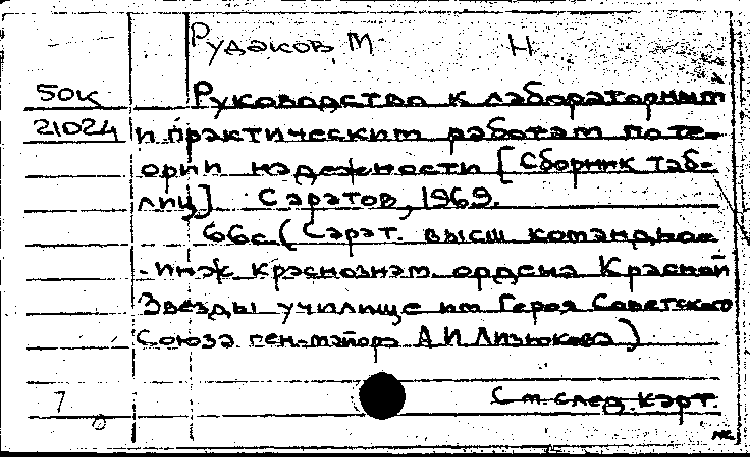 Рудаков, М Н
50к Руководство к лабораторным
21024 и практическим работам по те-
ории надежности [Сборник таб-
лиц]. Саратов, 1969.
66с. (Сарат. высш командно-
-инж краснознам. ордена Красной
Звезды училище им Героя Советского
Союза ген.-майора А И Лизюкова)
7 См. след. карт.